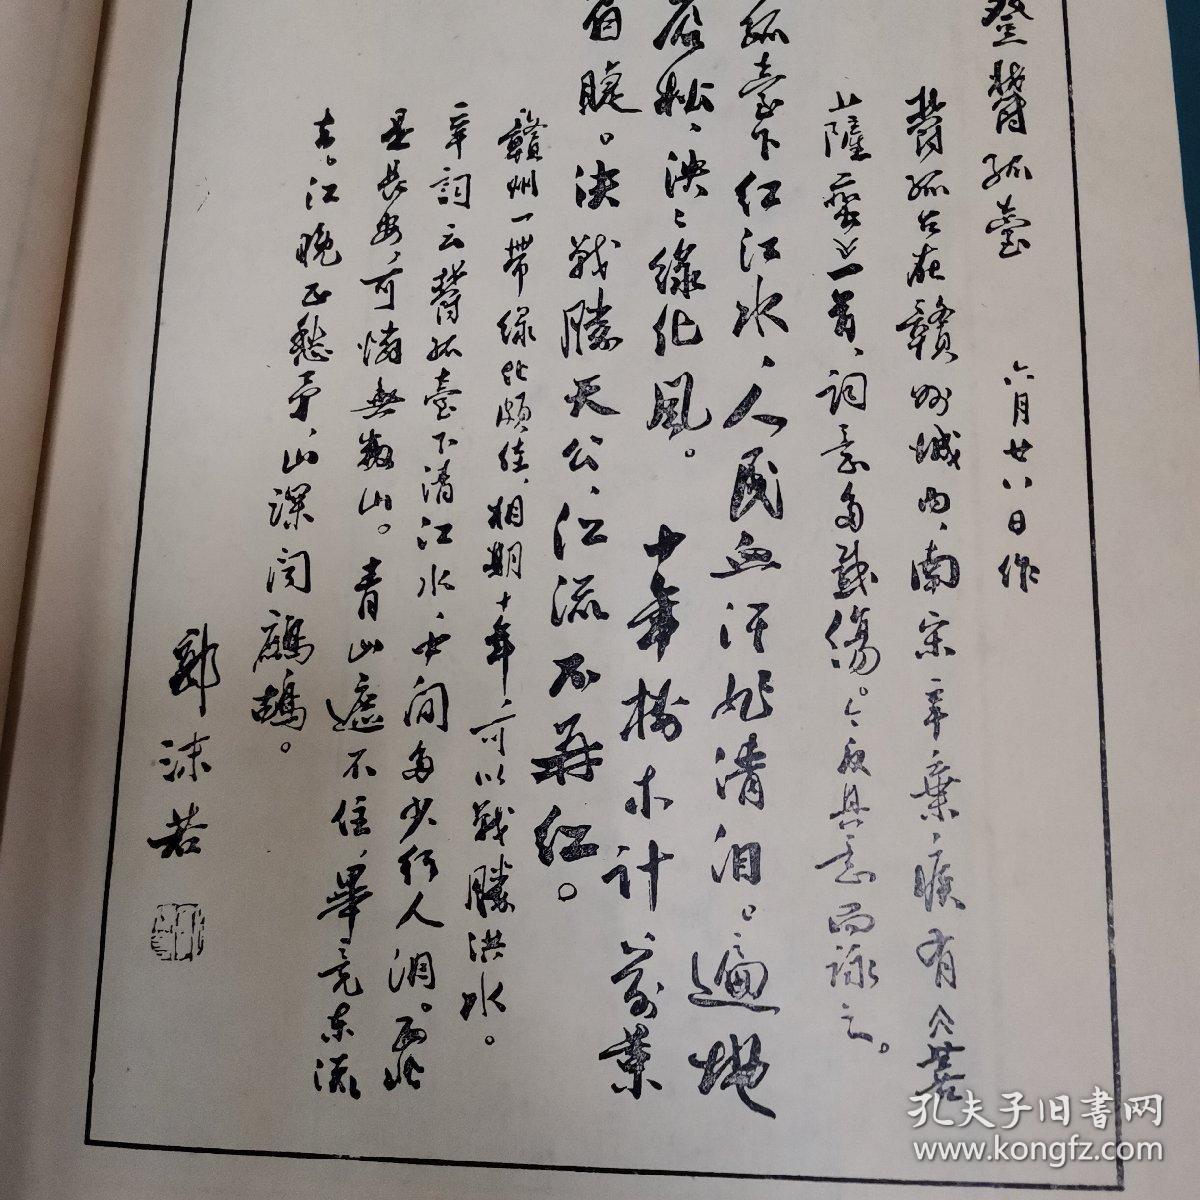 登鬱孤臺 六月廿八日作
鬱孤台在贛州城内,南宋辛棄疾有《菩
薩蛮》一首,詞意多感傷。今反其意而詠之。
孤臺下紅江水,人民血汗非清泪。遍地
松,泱泱綠化風。十年樹木計,萬業
睫。決戰勝天公,江流不再红。
贛州一帶绿化頗佳,相期十年,可以戰勝洪水。
辛詞云鬱孤臺下清江水,中间多少行人泪。西北
是長安,可憐無數山。青山遮不住,畢竟東流
去。江晚正愁予,山深闻鷓鴣。
郭沫若
孔夫子旧書网
www.kongfz.com